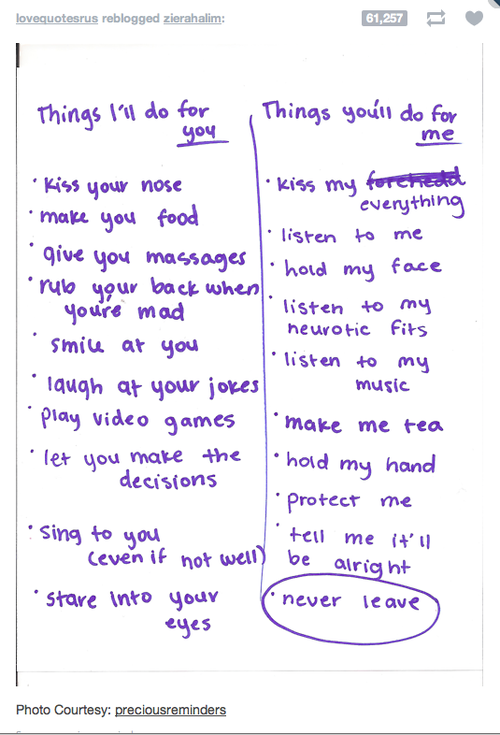 lovequotesrus reblogged zierahalim:
61,257
Things I'll do for
you
• kiss your nose
• make you food
• give you massages
• rub your back when
you're mad
• smile at you
• laugh at your jokes
• play video games
• let you make the
decisions
• sing to you
(even if not well)
• stare into your
eyes
Things you'll do for
me
• kiss my forehead
everything
• listen to me
• hold my face
• listen to my
neurotic fits
• listen to my
music
• make me tea
• hold my hand
• protect me
• tell me it'll
be alright
• never leave
Photo Courtesy: preciousreminders